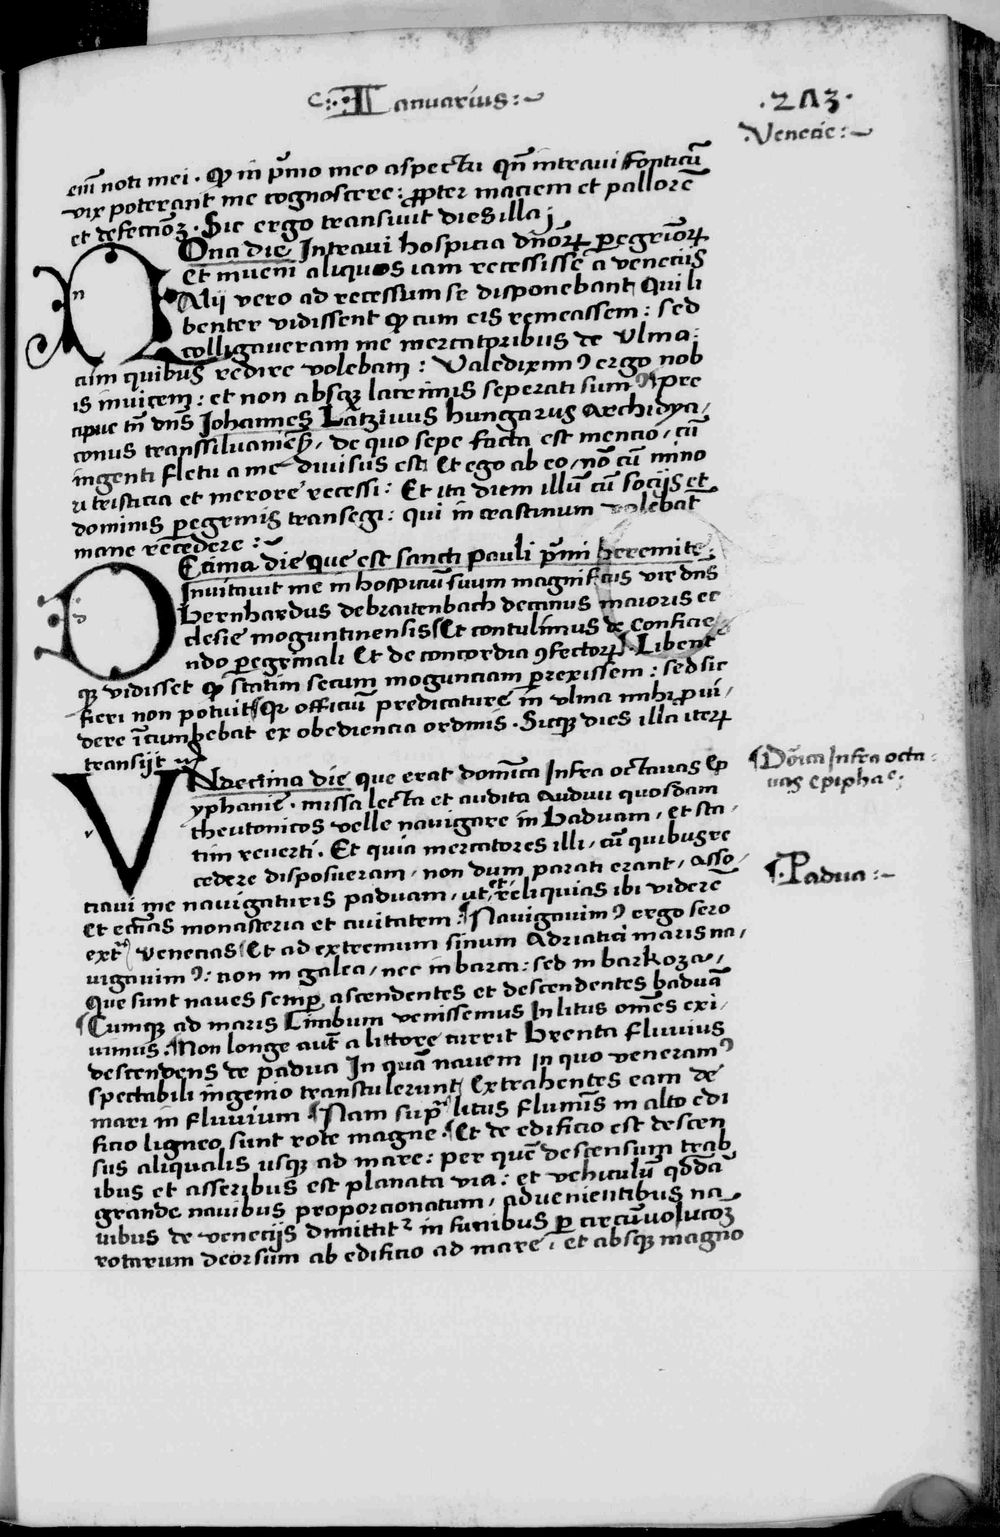 Ianuarius
.2Λ3.
Venecie
eim̄ noti mei. Qꝫ in p̄mo meo aspectu qn̄ intraui ffonticū
vix poterant me cognoscere: ꝓpter maciem et pallorē
et defectiōꝫ. Sic ergo transiuit dies illa
Ona die Intraui hospicia dn̄oꝝ peregrīoꝝ
Et inueni aliquos iam recessisse a venecijs
Alij vero ad recessum se disponebant Qui li
benter vidissent qꝫ cum eis remeassem: sed
colligaueram me mercatoribus de Ulma:
cum quibus redire volebam: Ualediximꝰ ergo nob
is inuicem: et non absqꝫ lacrimis seperati sumꝰ pre
cipue tn̄ dn̄s Johannes Latzivus hungarus Archidya/
conus transsiluaniēsꝭ, de quo sepe facta est mencio, cū
ingenti fletu a me diuisus est Et ego ab eo, nō cū mino
ri tristicia et merore recessi: Et ita diem illū cū socijs et
dominis peregrinis transegi: qui in crastinum volebāt
mane recedere:
Ecima die que est sancti Pauli p̄mi heremite
Inuitauit me in hospiciū suum magnificus vir dn̄s
Bernhardus de braitenbach decanus maioris ec
clesie moguntinensis Et contulimus de conficie
ndo peregrinali Et de concordia ꝯfectoꝝ. Libent
qꝫ vidisset qꝫ statim secum mogunciam perexissem: sed sic
fieri non potuit qꝛ officiū predicature in ulma mihi proui/
dere īcumbebat ex obediencia ordinis. Sicqꝫ dies illa iteꝝ
transijt
Ndecima die que erat domīca Infra octauas Ep
yphanie. missa lecta et audita Audiui quosdam
theutonicos velle nauigare in Baduam, et sta/
tim reuerti. Et quia mercatores illi, cū quibus re
cedere disposueram, non dum parati erant, asso/
ciaui me nauigaturis paduam, ut et reliquias ibi viderē
et ecc̄ias monasteria et ciuitatem: Nauigauimꝰ ergo sero
extª venecias Et ad extremum sinum Adriatici maris na/
uigauimꝰ: non in galea, nec in barca: sed in barkoza,
Que sunt naues semp̱ ascendentes et descendentes baduā
Cumqꝫ ad maris Limbum venissemus In litus om̄es exi/
uimus. Non longe aut̄ a littore currit Brenta fluuius
descendens de padua In quā nauem In quo veneramꝰ
spectabili ingenio transtulerunt Extrahentes eam de
mari in fluuium Nam supª litus fluminis in alto edi
ficio ligneo sunt rote magne. Et de edificio est descen
sus aliqualis usqꝫ ad mare: per quē descensum trab
ibus et asseribus est planata via: et vehiculū qd̄dā
grande nauibus proporcionatum, aduenientibus na
uibus de venecijs dimittitᷣ in funibus p̱ circūuolucōꝫ
rotarum deorsum ab edificio ad mare, et absqꝫ magno
Dōica Infra octa
uas epiphae
Padua